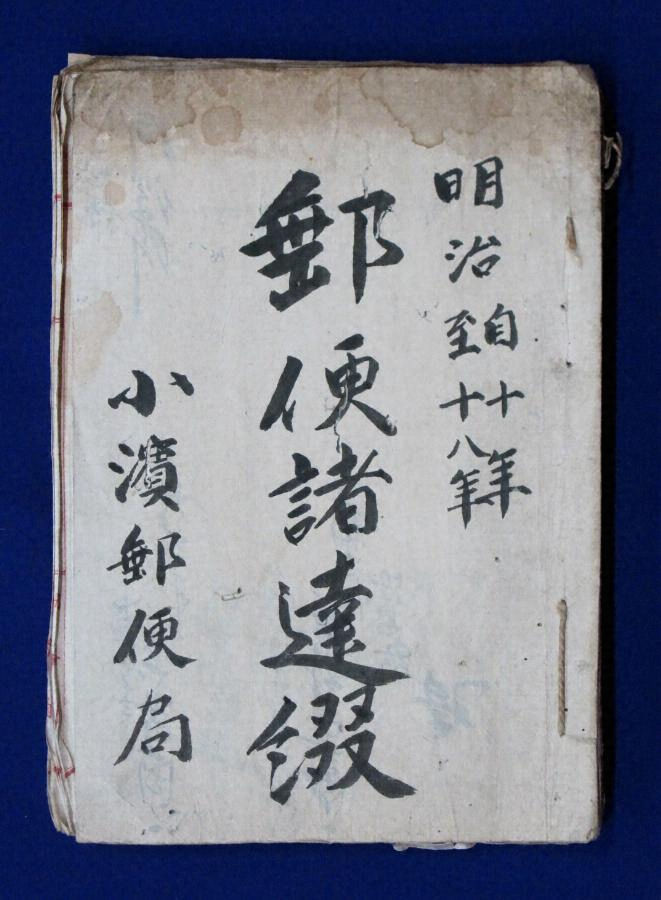 明治自十年
至十八年
郵便諸達綴
小濱郵便局